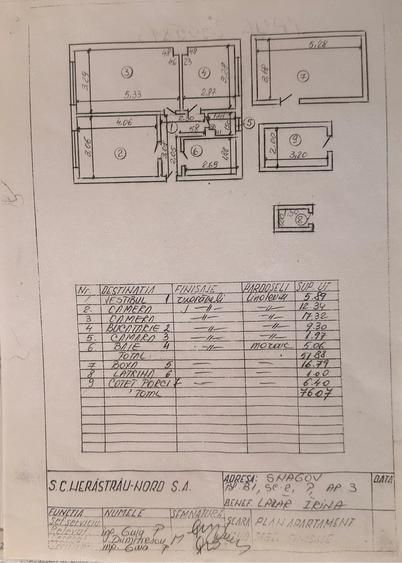 3
4
7
5.28
3.18
48
46
48
23
3.29
5.33
2.87
3.23
4.06
2.30
1
5
9
2.00
3.20
3.06
2
3.07
2.05
58
6
2.69
8
Nr. DESTINATIA FINISAJE PARDOSELI SUP. UT.
1 VESTIBUL 1 zugrăveli linoleum 5.89
2. CAMERA —//— 12.34
3 CAMERA —//— —//— 17.32
4 BUCATARIE 2 —//— —//— 9.30
5. CAMARA 3 —//— —//— 1.97
6 BAIE 4 —//— mozaic 5.06
TOTAL 51.88
7 BOXA 5 — — 16.79
8 LATRINA 6 — — 1.00
9 COTET PORCI 7 — — 6.40
TOTAL 76.07
S.C. HERĂSTRĂU-NORD S.A.
ADRESA: SNAGOV
Bl B1, SC. 2, P, AP 3
BENEF. LAZAR IRINA
DATA
FUNCTIA NUMELE SEMNATURA
Sef serviciu Ing. Guia P
Dumitrescu M
Ing. Guia P
SCARA PLAN APARTAMENT